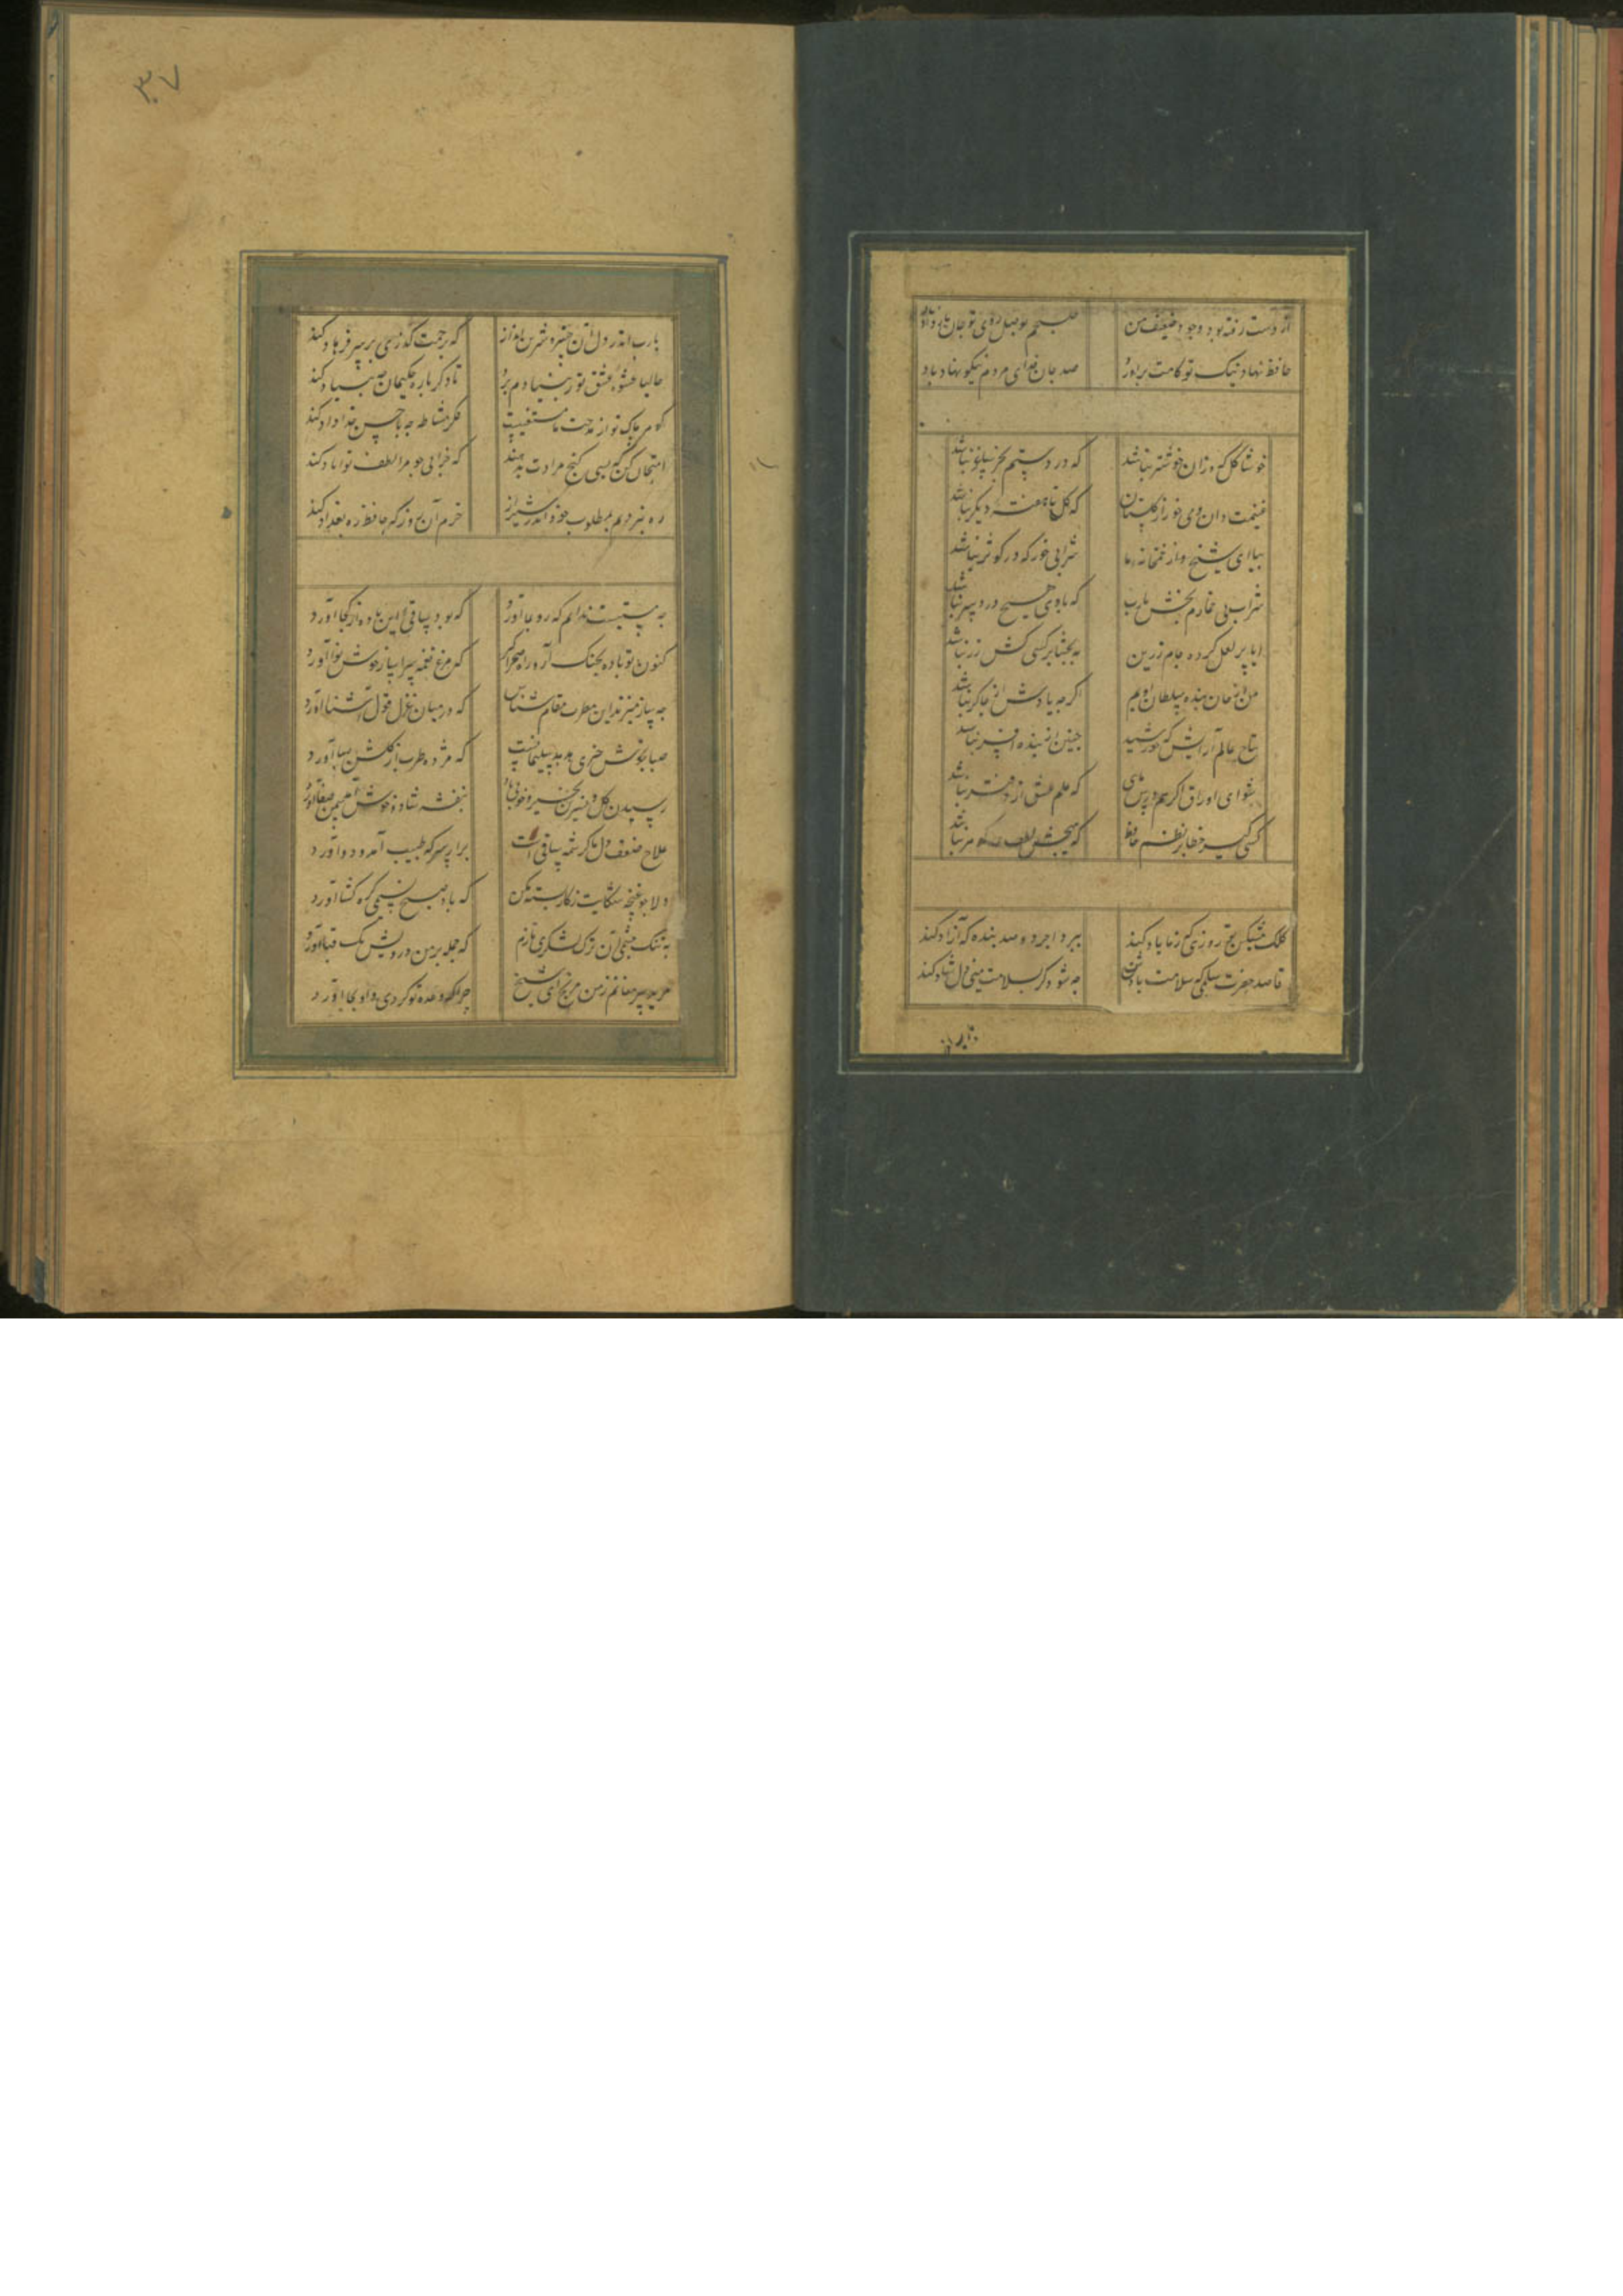 از دست رفته بود وجود ضعیف من صبحم بوصل روی تو جان باز داد باد
حافظ نهاد نیک تو کامت برآورد صد جان فدای مردم نیکو نهاد باد
خوشا گل کز وزان خوشتر نباشد که در دستم بجز ساغر نباشد
غنیمت دان و می خور از گلستان که گل تا هفته دیگر نباشد
بیا ای شیخ و از خمخانه ما شرابی خور که در کوثر نباشد
شراب بی خمارم بخش یارب که با وی هیچ درد سر نباشد
ایا پر لعل کرده جام زرین به بخشا بر کسی کش زر نباشد
من از جان بنده سلطان اویسم اگرچه یادش از چاکر نباشد
بتاج عالم آرایش که خورشید چنین زیبنده افسر نباشد
بشو ای اوراق اگر هم درس مای که علم عشق از دفتر نباشد
کسی گیرد خطا بر نظم حافظ که هیچش لطف در گوهر نباشد
کلک مشکین تو روزی که ز ما یاد کند ببرد اجر دو صد بنده که آزاد کند
قاصد حضرت سلمی که سلامت بادش چه شود گر بسلامت منی دل شاد کند
یارب
یارب اندر دل آن خسرو شیرین انداز که برحمت گذری بر سر فرهاد کند
حالیا عشوه عشق تو ز بنیادم برد تا دگر باره حکیمانه چه بنیاد کند
گوهر پاک تو از مدحت ما مستغنیست فکر مشاطه چه با حسن خداداد کند
امتحان کن که بسی گنج مرادت بدهند که خرابی چو مرا لطف تو آباد کند
ره نبردیم بمطلوب خود اندر شیراز خرم آن روز که حافظ ره بغداد کند
چه مستیست ندانم که رو بما آورد که بود ساقی این باده از کجا آورد
کنون تو باده بچنگ آر و راه صحرا گیر که مرغ نغمه سرا ساز خوش نوا آورد
چه ساز میزند این مطرب مقام شناس که در میان غزل قول آشنا آورد
صبا بخوش خبری هدهد سلیمانست که مژده طرب از گلشن سبا آورد
رسیدن گل و نسرین بخیر و خوبی باد بنفشه شاد و خوش آمد سمن صفا آورد
علاج ضعف دل ما کرشمه ساقی است برآر سر که طبیب آمد و دوا آورد
دلا چو غنچه شکایت ز کار بسته مکن که باد صبح نسیم گره گشا آورد
به تنگ چشمی آن ترک لشکری نازم که حمله بر من درویش یک قبا آورد
مرید پیر مغانم ز من مرنج ای شیخ چراکه وعده تو کردی و او بجا آورد
۳۷